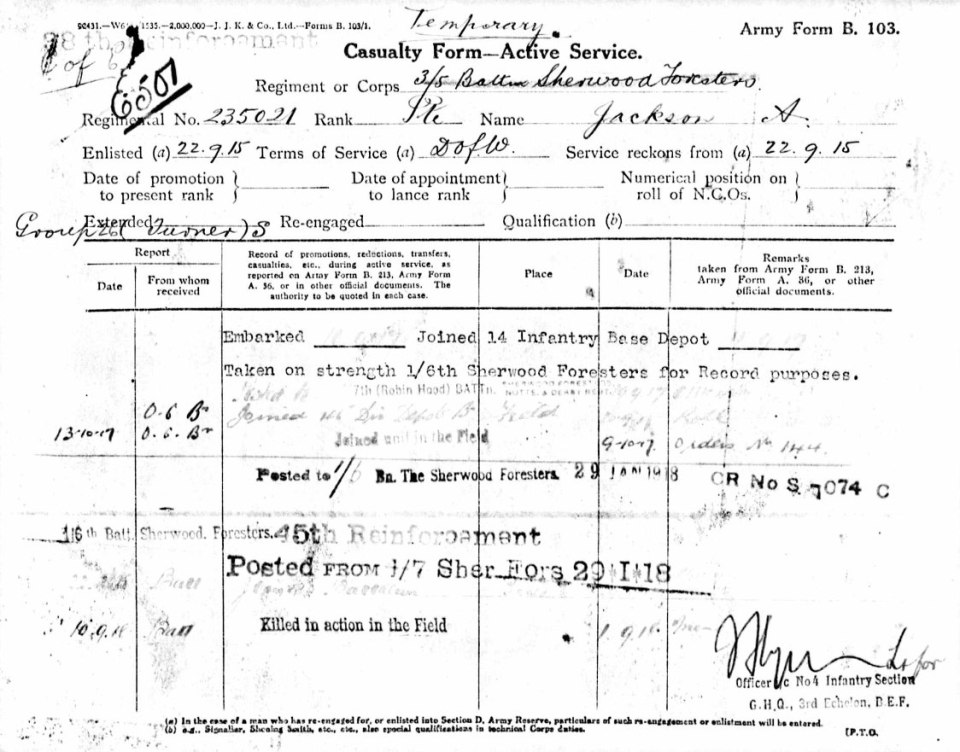 Temporary.
Army Form B. 103.
88th Reinforcement
Casualty Form—Active Service.
Regiment or Corps 3/5 Battn Sherwood Foresters.
6507
Regimental No. 235021 Rank Pte Name Jackson A.
Enlisted (a) 22.9.15 Terms of Service (a) DofW. Service reckons from (a) 22.9.15
Date of promotion to present rank
Date of appointment to lance rank
Numerical position on roll of N.C.Os.
Extended Re-engaged Qualification (b)
Group 26 (Turner) S
Report
Date
From whom received
Record of promotions, reductions, transfers, casualties, etc., during active service, as reported on Army Form B. 213, Army Form A. 36, or in other official documents. The authority to be quoted in each case.
Place
Date
Remarks taken from Army Form B. 213, Army Form A. 36, or other official documents.
Embarked Joined 14 Infantry Base Depot
Taken on strength 1/6th Sherwood Foresters for Record purposes.
7th (Robin Hood) BATTn.
O.C Bn Joined Field
13-10-17 O.C. Bn Joined unit in the Field 9-10-17 Orders No 144.
Posted to 1/6 Bn. The Sherwood Foresters. 29 JAN 1918 CR No S 7074 C
1/6th Batt. Sherwood. Foresters. 45th Reinforcement
Posted FROM 1/7 Sher Fors 29·I·18
10.9.18 Batt Killed in action in the Field 1.9.18
Lt for
Officer i/c No 4 Infantry Section
G.H.Q., 3rd Echelon, B.E.F.
(a) In the case of a man who has re-engaged for, or enlisted into Section D. Army Reserve, particulars of such re-engagement or enlistment will be entered.
(b) e.g., Signaller, Shoeing Smith, etc., etc., also special qualifications in technical Corps duties.
[P.T.O.